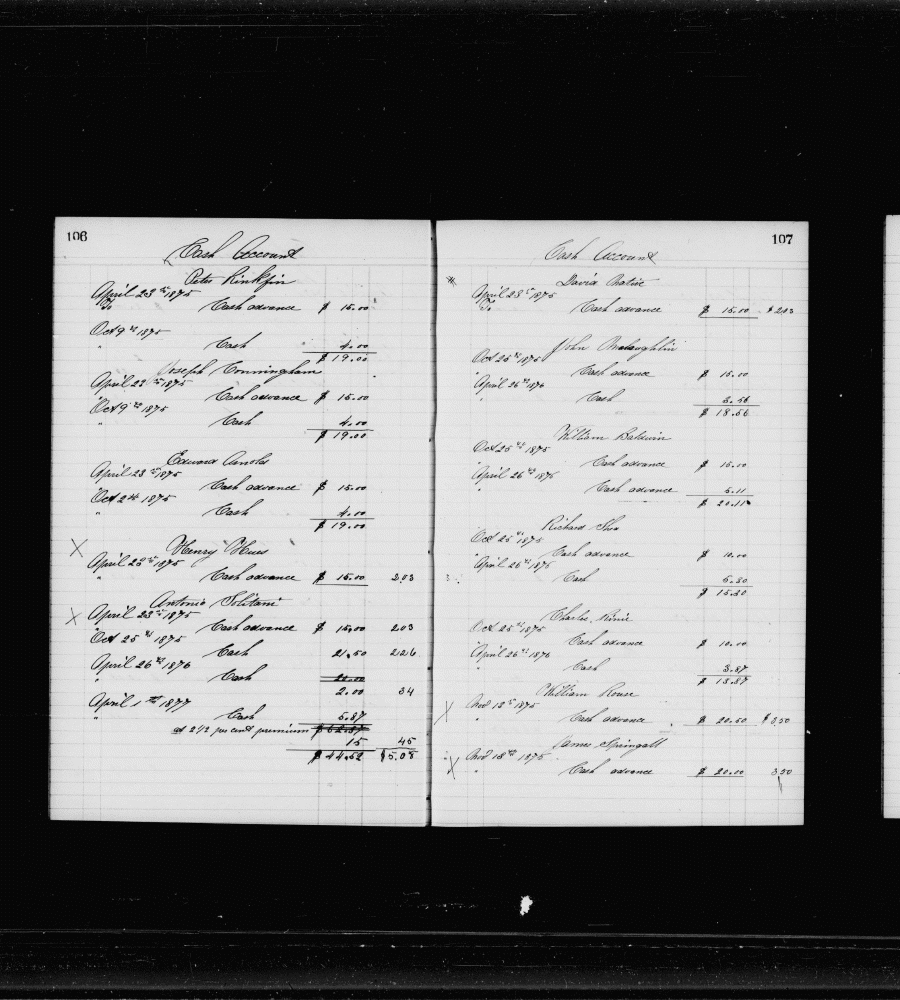 106
Cash Account
Peter
April 23 1875
To Cash advance $ 15.00
Oct 9th 1875
" Cash 4.00
$ 19.00
Joseph Cunningham
April 22 1875
Cash advance $ 15.00
Oct 9th 1875
" Cash 4.00
$ 19.00
Edward Arnold
April 23 1875
" Cash advance $ 15.00
Oct 2nd 1875
" Cash 4.00
$ 19.00
X Henry Hues
April 23 1875
" Cash advance $ 15.00 2,03
Antonio Solitani
X April 23 1875
" Cash advance $ 15,00 203
Oct 25 1875
" Cash 21.50 226
April 26 1876
" Cash 20.00
2.00 34
April 1st 1877
" Cash 5.87
at 2 1/2 per cent premium
15 45
$ 44.52 $5.08
107
Cash Account
David
April 23 1875
To Cash advance $ 15.00 $ 2.03
John
Oct 25 1875
" Cash advance $ 15.00
April 26 1876
" Cash 3.56
$ 18.56
William Baldwin
Oct 25 1875
Cash advance $ 15.00
April 26 1876
" Cash advance 5.11
$ 20.11
Richard Shea
Oct 25 1875
" Cash advance $ 10.00
April 26 1875
" Cash 5.30
$ 15.30
Charles
Oct 25 1875
" Cash advance $ 10.00
April 26 1876
" Cash 3.87
$ 13.87
William Rouse
X Nov 12 1875
" Cash advance $ 20.50 $ 3,50
James Springall
X Nov 18 1875
" Cash advance $ 20.00 3 50